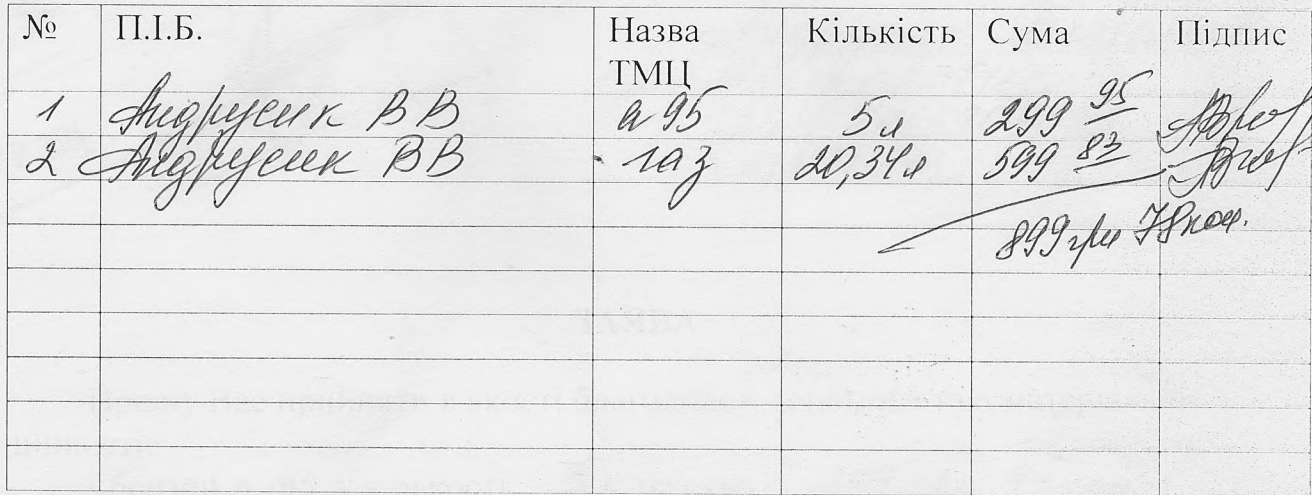 № П.І.Б. Назва ТМЦ Кількість Сума Підпис
1 Андрусик В В а 95 5 л 299 95
2 Андрусик ВВ газ 20,34 л 599 83
899 грн 78 коп.
ЗАЯВА